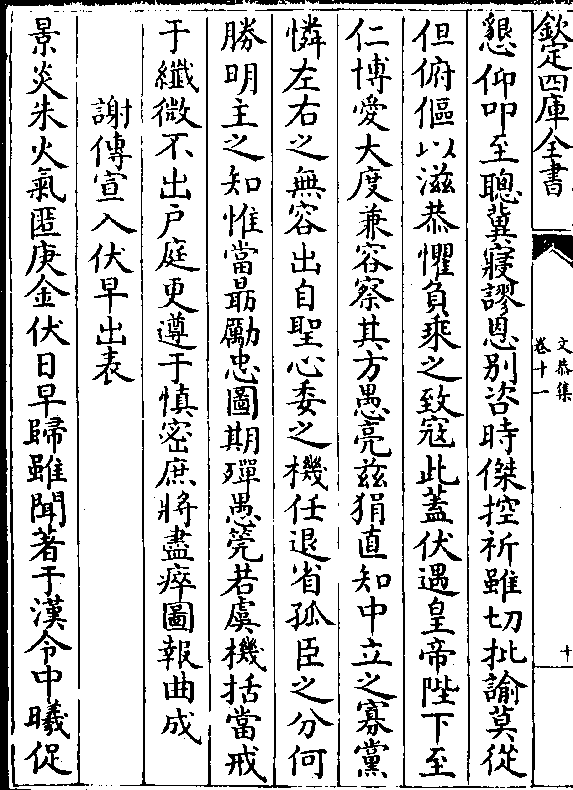 欽定四庫全書
文恭集
卷十一
十
懇仰叩至聰冀寢謬恩别咨時傑控祈雖切批諭莫從
但俯傴以滋恭懼負乘之致寇此蓋伏遇皇帝陛下至
仁博愛大度兼容察其方愚亮兹狷直知中立之寡黨
憐左右之無容出自聖心委之機任退省孤臣之分何
勝明主之知惟當勗勵忠圖期殫愚筦若虞機括當戒
于纖微不出户庭更遵于慎密庶將盡瘁圖報曲成
謝傳宣入伏早出表
景炎朱火氣匿庚金伏日早歸雖聞著于漢令中曦促